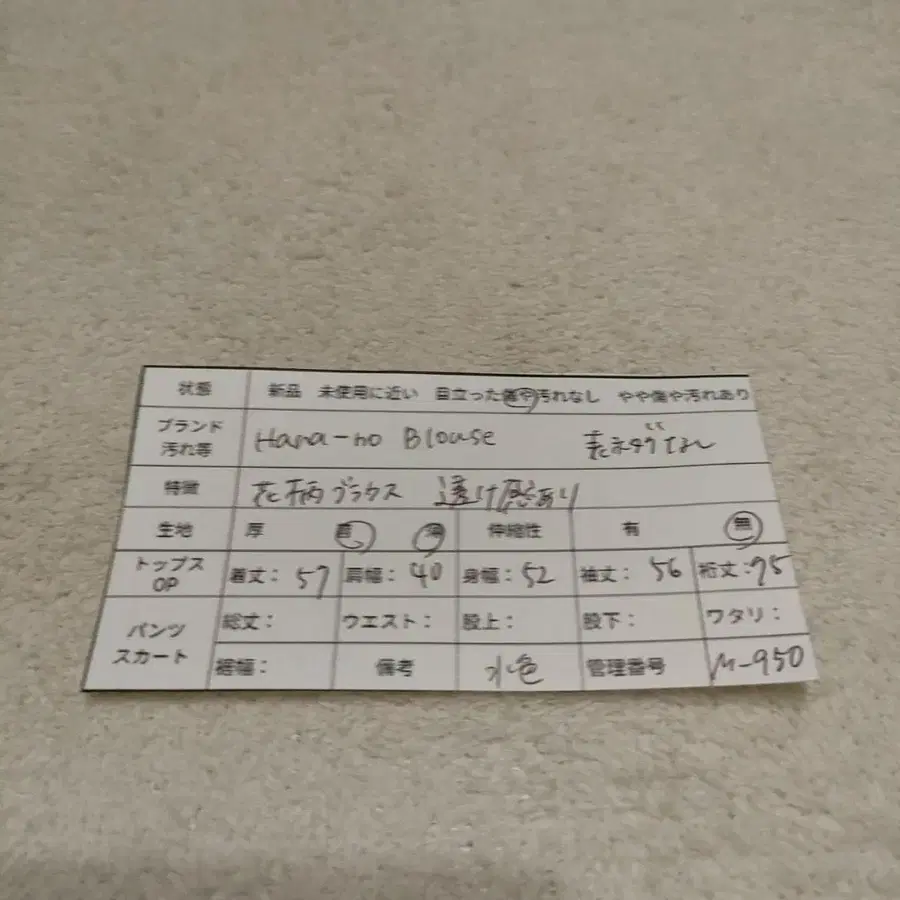 状態 新品 未使用に近い 目立った傷や汚れなし やや傷や汚れあり
ブランド 汚れ等 Hana-no Blouse
特徴 花柄ブラウス 透け感あり
生地 厚 普 薄 伸縮性 有 無
トップス OP 着丈: 57 肩幅: 40 身幅: 52 袖丈: 56 裄丈: 75
パンツ スカート 総丈: ウエスト: 股上: 股下: ワタリ:
裾幅: 備考 水色 管理番号 M-950